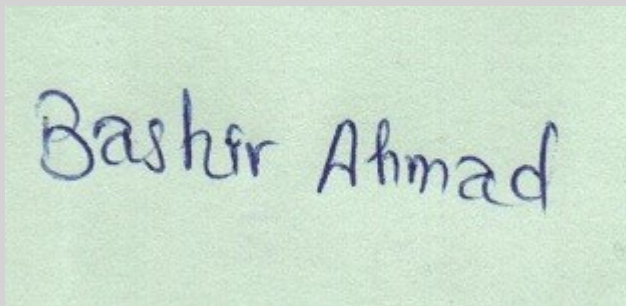 Bashir Ahmad